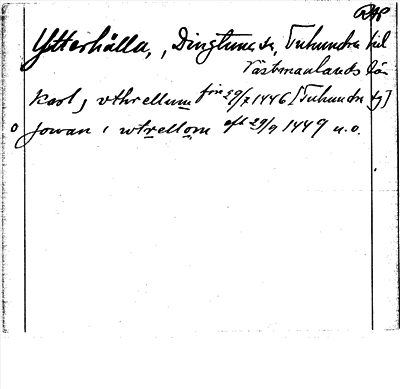 RAP
Ytterhälla, , Dingtuna sn, Tuhundra hd
Västmanlands län
Karl, vthrellum för 29/7 1446 [Tuhundra tg]
o Jowan i wtrellom eft 29/9 1449 u.o.